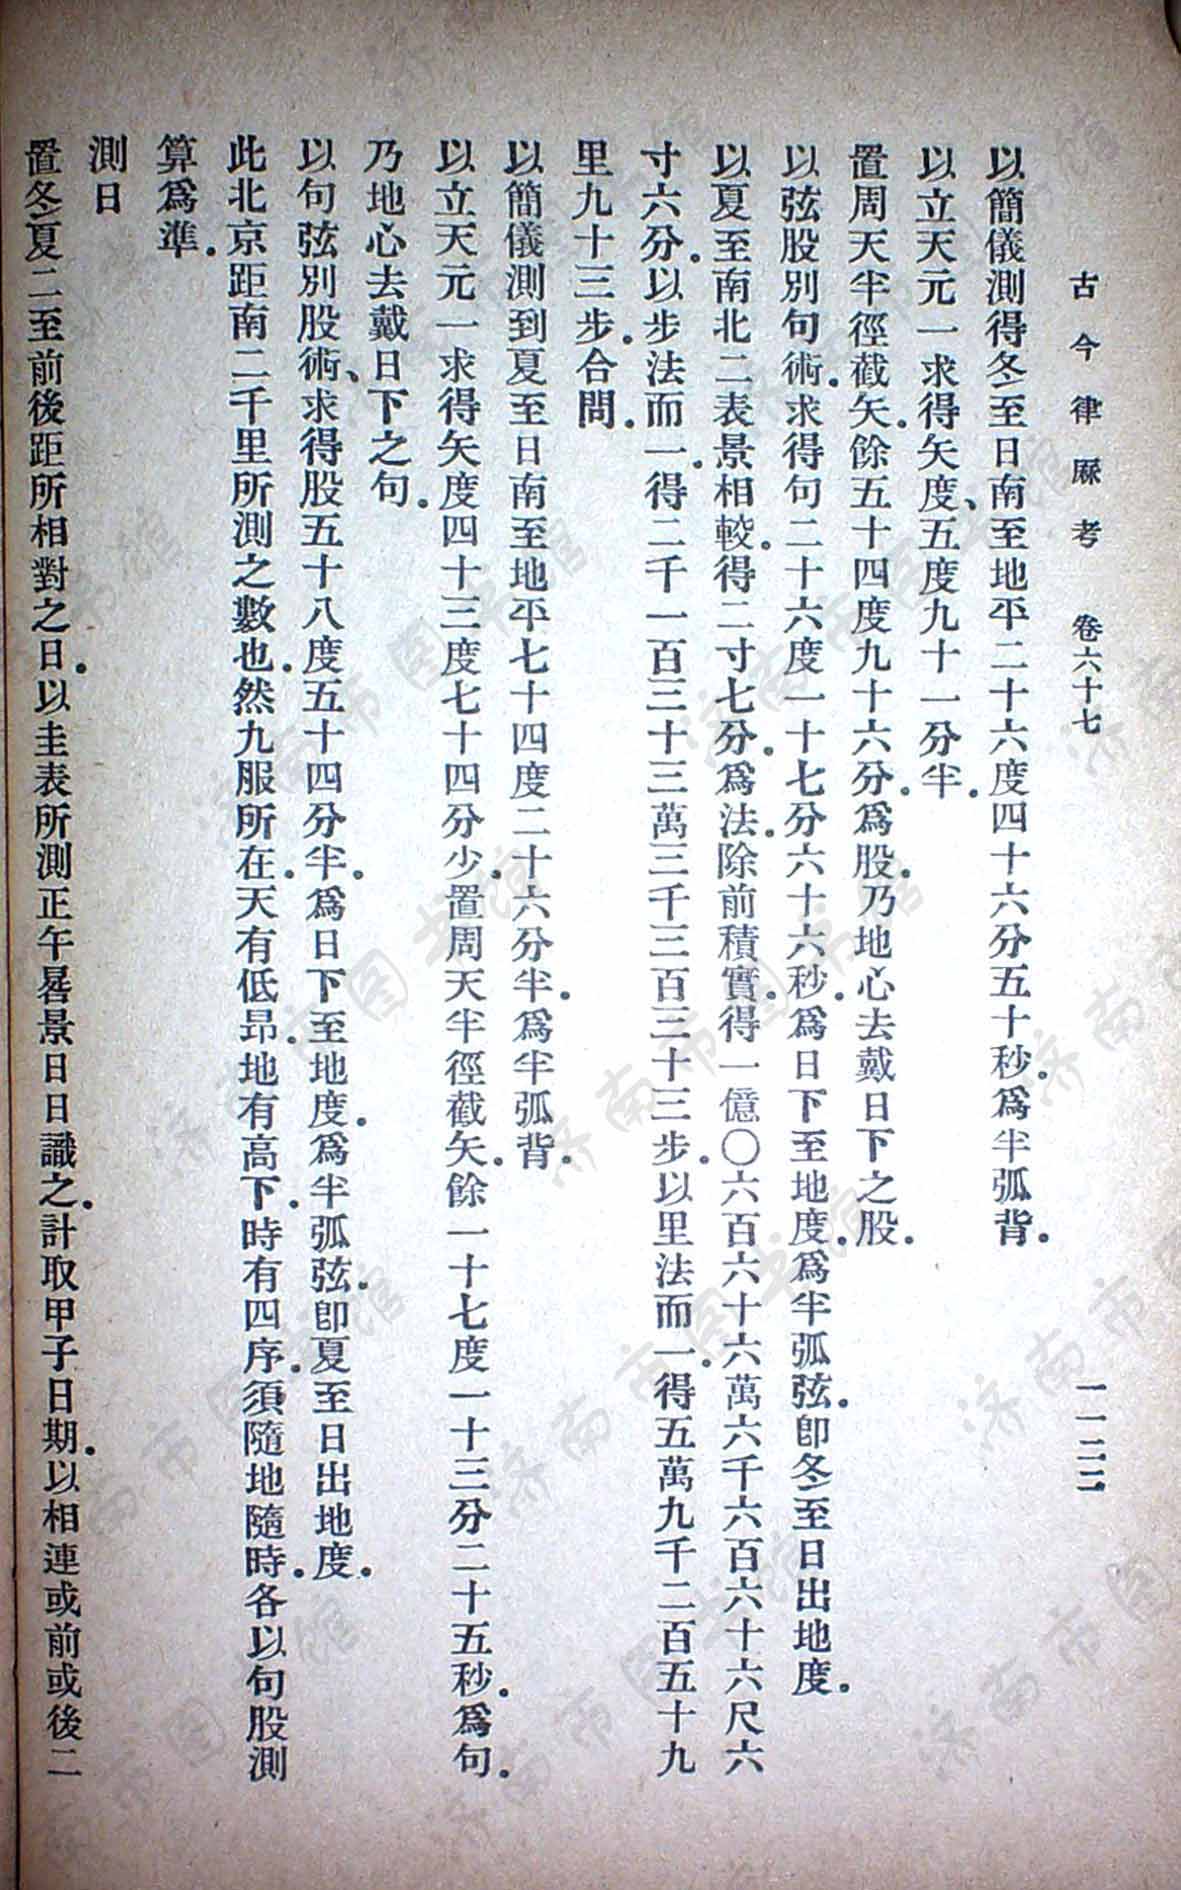 古今律厤考　卷六十七　一一二二
以簡儀測得冬至日南至地平二十六度四十六分五十秒。爲半弧背。
以立天元一求得矢度、五度九十一分半。
置周天半徑截矢。餘五十四度九十六分。爲股。乃地心去戴日下之股。
以弦股別句術。求得句二十六度一十七分六十六秒。爲日下至地度。爲半弧弦。卽冬至日出地度。
以夏至南北二表景相較。得二寸七分。爲法。除前積實。得一億〇六百六十六萬六千六百六十六尺六
寸六分。以步法而一。得二千一百三十三萬三千三百三十三步。以里法而一。得五萬九千二百五十九
里九十三步。合問。
以簡儀測到夏至日南至地平七十四度二十六分半。爲半弧背。
以立天元一求得矢度四十三度七十四分少。置周天半徑截矢。餘一十七度一十三分二十五秒。爲句。
乃地心去戴日下之句。
以句弦別股術、求得股五十八度五十四分半。爲日下至地度。爲半弧弦。卽夏至日出地度。
此北京距南二千里所測之數也。然九服所在。天有低昂。地有高下。時有四序。須隨地隨時。各以句股測
算爲準。
測日
置冬夏二至前後距所相對之日。以圭表所測正午晷景日日識之。計取甲子日期。以相連或前或後二